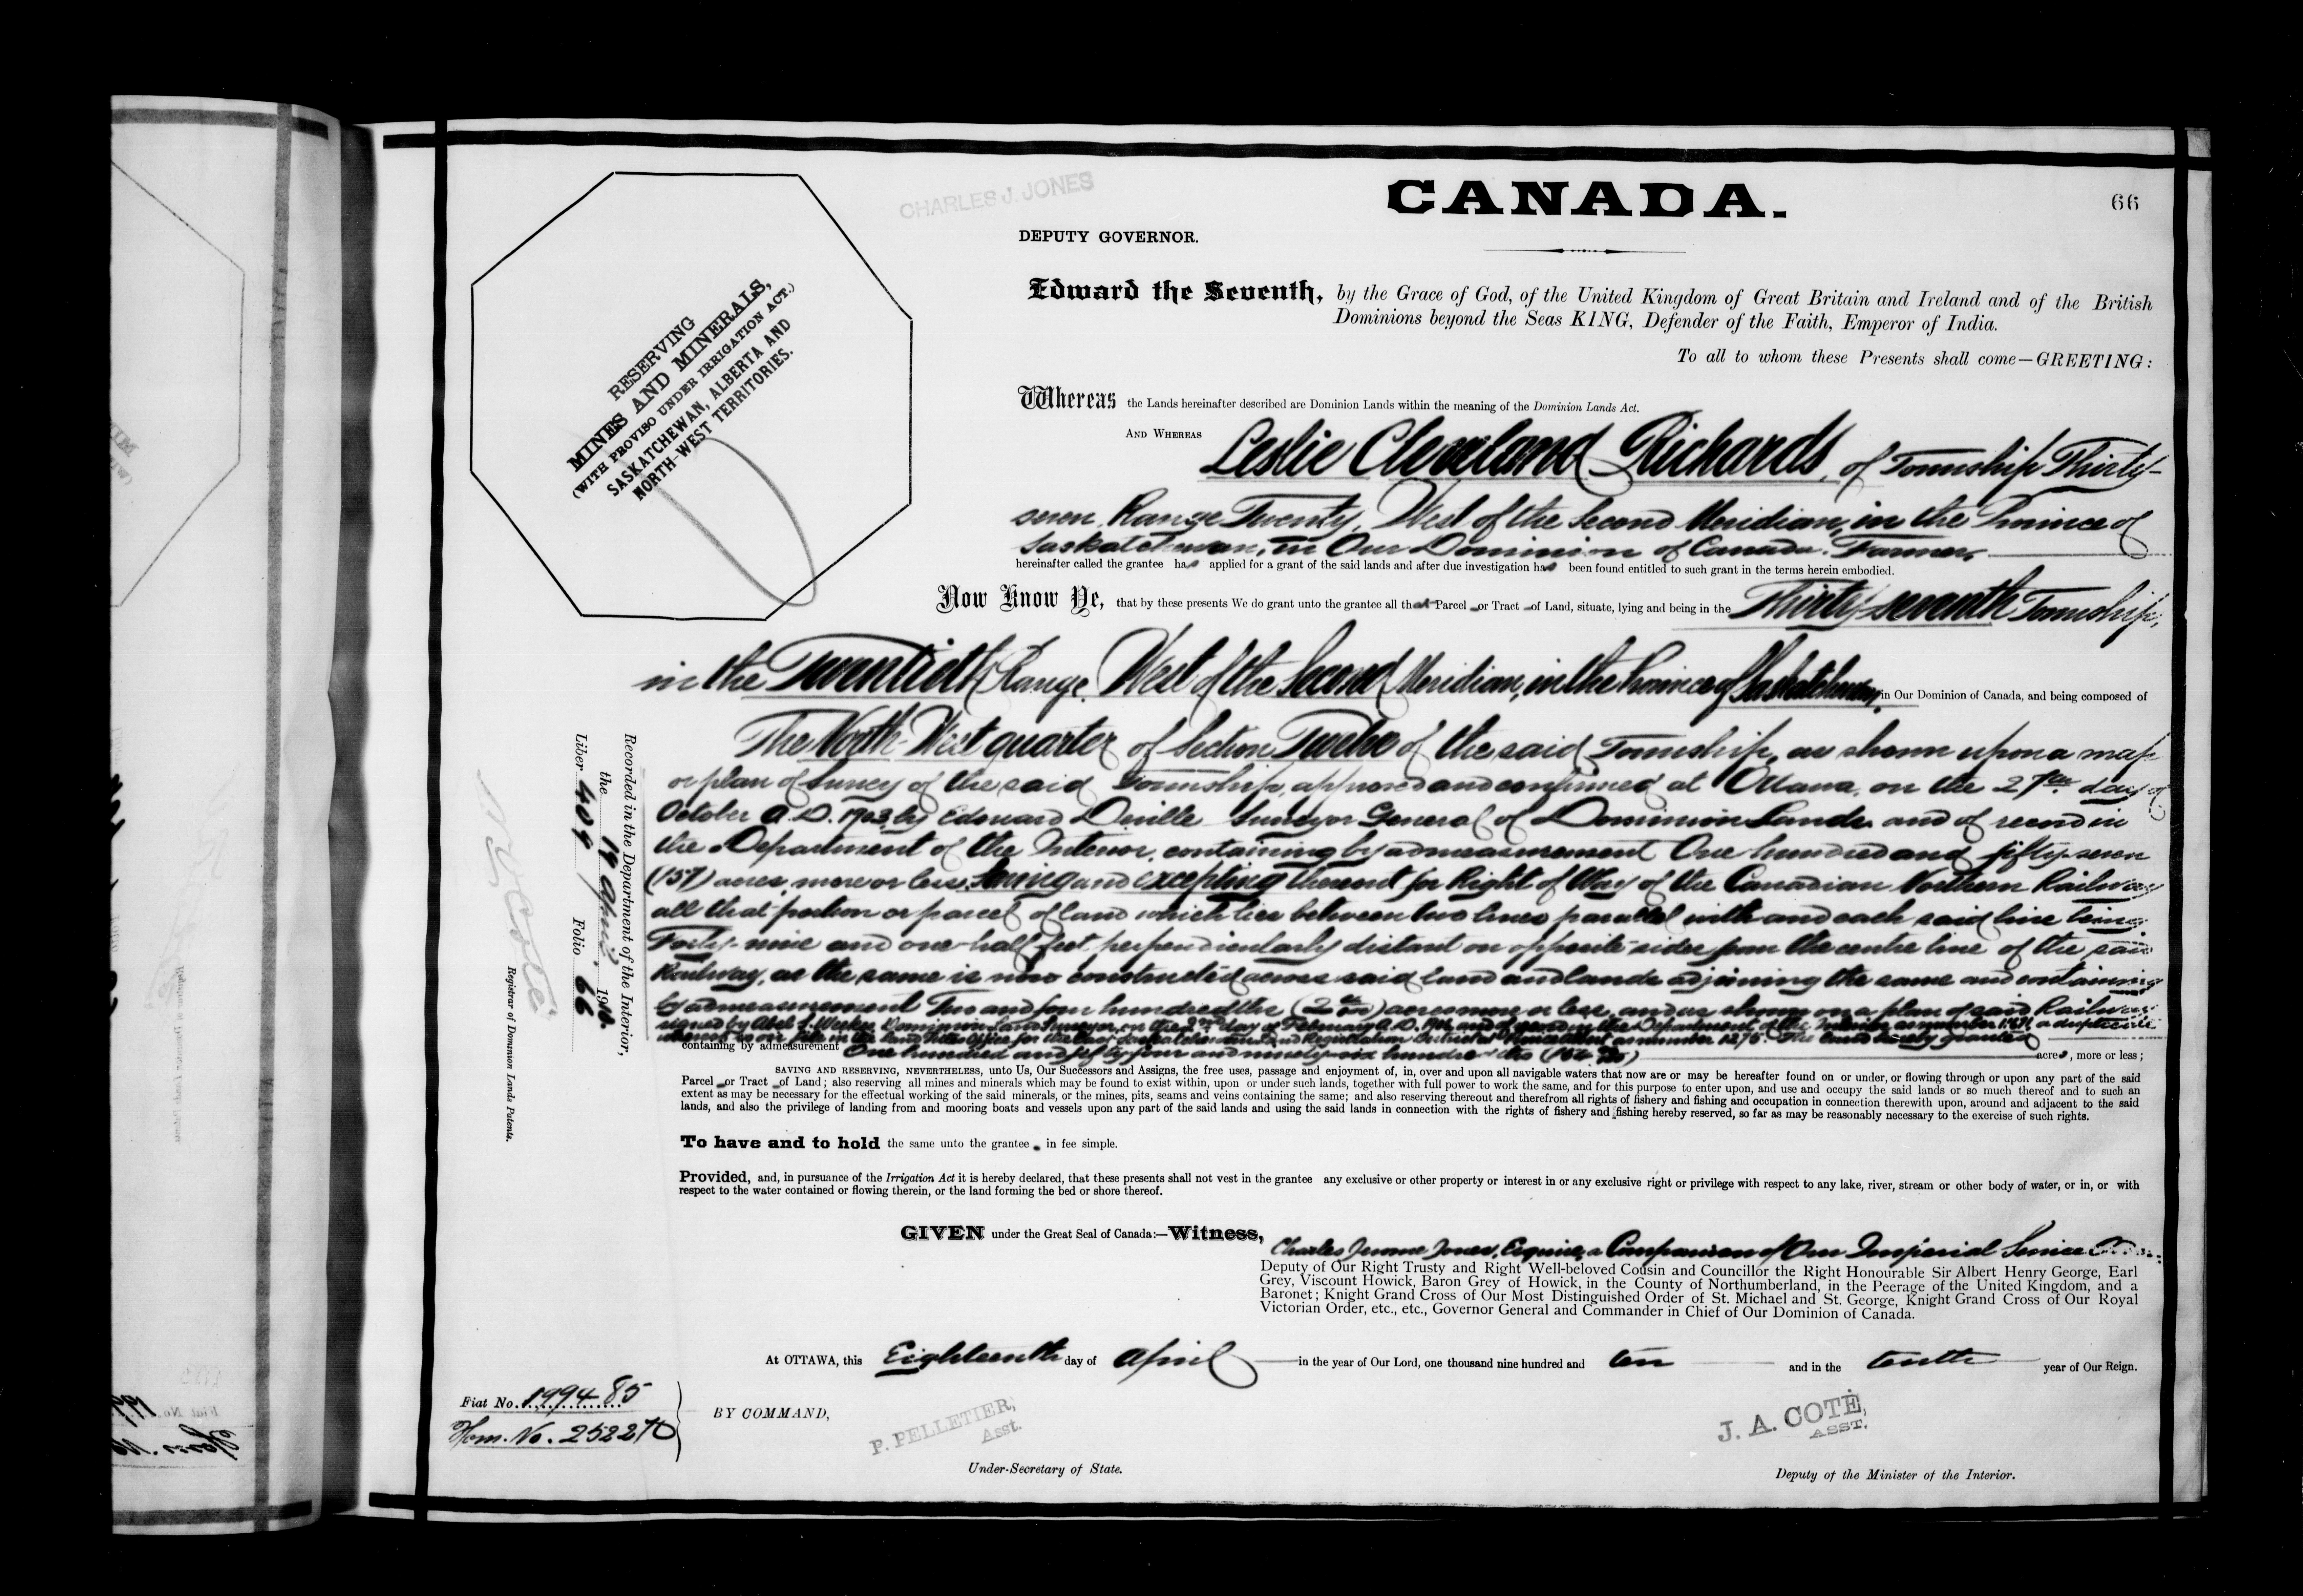 CHARLES J. JONES
CANADA.
66
DEPUTY GOVERNOR.
RESERVING
MINES AND MINERALS,
(WITH PROVISO UNDER IRRIGATION ACT.)
SASKATCHEWAN, ALBERTA AND
NORTH-WEST TERRITORIES.
Edward the Seventh, by the Grace of God, of the United Kingdom of Great Britain and Ireland and of the British
Dominions beyond the Seas KING, Defender of the Faith, Emperor of India.
To all to whom these Presents shall come—GREETING:
Whereas the Lands hereinafter described are Dominion Lands within the meaning of the Dominion Lands Act.
AND WHEREAS Leslie Cleveland Richards, of Township Thirty-
seven, Range Twenty, West of the Second Meridian, in the Province of
Saskatchewan, in Our Dominion of Canada, Farmer,
hereinafter called the grantee has applied for a grant of the said lands and after due investigation has been found entitled to such grant in the terms herein embodied.
Now Know Ye, that by these presents We do grant unto the grantee all that Parcel or Tract of Land, situate, lying and being in the Thirty-seventh Township,
in the Twentieth Range, West of the Second Meridian, in the Province of Saskatchewan, in Our Dominion of Canada, and being composed of
The North-West quarter of Section Twelve of the said Township, as shown upon a map
or plan of survey of the said Township, approved and confirmed at Ottawa, on the 27th day of
October A.D. 1903, by Edouard Deville Surveyor General of Dominion Lands and of record in
the Department of the Interior, containing by admeasurement One hundred and fifty-seven
(157) acres, more or less, Saving and excepting thereout for Right of Way of the Canadian Northern Railway
all that portion or parcel of land which lies between two lines parallel with and each said line being
Forty-nine and one-half feet perpendicularly distant on opposite sides from the centre line of the said
Railway, as the same is now constructed across said land and lands adjoining the same and containing
by admeasurement Two and four hundredths acres more or less, and as shown on a plan of said Railway
signed by Abel S. Weekes, Dominion Land Surveyor, on the day of February A.D. and of record in the Department of the Interior as number a duplicate
whereof is on file in the Land Titles Office for the East Saskatchewan Land Registration District at Prince Albert as number The land hereby granted
containing by admeasurement One hundred and fifty four and ninety-six hundredths acres, more or less;
SAVING AND RESERVING, NEVERTHELESS, unto Us, Our Successors and Assigns, the free uses, passage and enjoyment of, in, over and upon all navigable waters that now are or may be hereafter found on or under, or flowing through or upon any part of the said
Parcel or Tract of Land; also reserving all mines and minerals which may be found to exist within, upon or under such lands, together with full power to work the same, and for this purpose to enter upon, and use and occupy the said lands or so much thereof and to such an
extent as may be necessary for the effectual working of the said minerals, or the mines, pits, seams and veins containing the same; and also reserving thereout and therefrom all rights of fishery and fishing and occupation in connection therewith upon, around and adjacent to the said
lands, and also the privilege of landing from and mooring boats and vessels upon any part of the said lands and using the said lands in connection with the rights of fishery and fishing hereby reserved, so far as may be reasonably necessary to the exercise of such rights.
To have and to hold the same unto the grantee in fee simple.
Provided, and, in pursuance of the Irrigation Act it is hereby declared, that these presents shall not vest in the grantee any exclusive or other property or interest in or any exclusive right or privilege with respect to any lake, river, stream or other body of water, or in, or with
respect to the water contained or flowing therein, or the land forming the bed or shore thereof.
GIVEN under the Great Seal of Canada:—Witness, Charles Jerome Jones, Esquire, a Companion of Our Imperial Service Order,
Deputy of Our Right Trusty and Right Well-beloved Cousin and Councillor the Right Honourable Sir Albert Henry George, Earl
Grey, Viscount Howick, Baron Grey of Howick, in the County of Northumberland, in the Peerage of the United Kingdom, and a
Baronet; Knight Grand Cross of Our Most Distinguished Order of St. Michael and St. George, Knight Grand Cross of Our Royal
Victorian Order, etc., etc., Governor General and Commander in Chief of Our Dominion of Canada.
At OTTAWA, this Eighteenth day of April in the year of Our Lord, one thousand nine hundred and ten and in the tenth year of Our Reign.
Fiat No. 199485
Hom. No. 252270
BY COMMAND,
P. PELLETIER,
Asst.
Under-Secretary of State.
J. A. COTÉ,
ASST.
Deputy of the Minister of the Interior.
Recorded in the Department of the Interior,
the 19 April 1910
Liber 409 Folio 66
N O Coté
Registrar of Dominion Lands Patents.